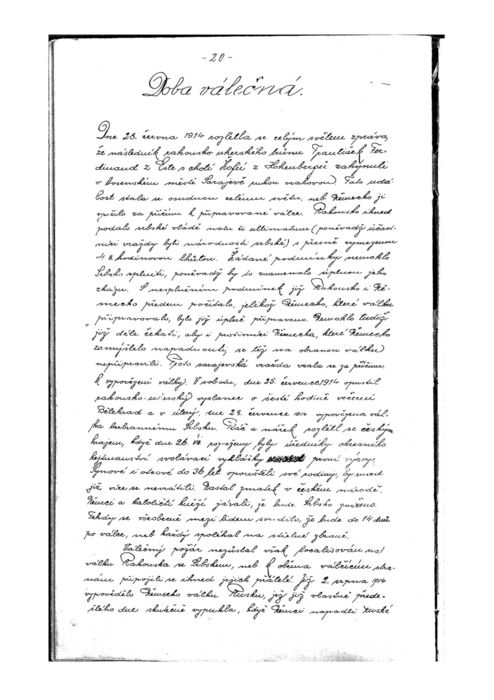 -20-
Doba válečná.
Dne 28. června 1914 rozlétla se celým světem zpráva,
že následník rakousko uherského trůnu František Fer-
dinand z Este s chotí Žofií z Hohenbergů zahynuli
v bosenském městě Sarajevě rukou vrahovou. Tato udá-
lost stala se osudnou celému světu, neb Německo ji
vzalo za příčinu k připravované válce. Rakousko ihned
podalo srbské vládě notu či ultimatum (poněvadž účast-
níci vraždy byli národnosti srbské) s přesně vymezenou
48 hodinovou lhůtou. Žádané podmínky nemohlo
Srbsko splniti, poněvadž by to znamenalo úplnou jeho
zkázu. S nesplněním podmínek již Rakousko i Ně-
mecko předem počítalo, jelikož Německo, které válku
připravovalo, bylo již úplně připraveno. Nemohlo tudíž
již déle čekati, aby i protivníci Německa, které Německo
zamýšlelo napadnouti, se též na obranou válku
nepřipravili. Proto sarajevská vražda vzata se za příčinu
k vypovězení války. V sobotu, dne 25. července 1914 opustil
rakousko-uherský vyslanec o šesté hodině večerní
Bělehrad a v úterý, dne 28. července 1914 vypovězena vál-
ka bezbrannému Srbsku. Pláč a nářek rozlétl se českým
krajem, když dne 26. VII byly úředníky okresního
hejtmanství svolávací vyhlášky první výzvy.
Synové i otcové do 36 let opouštěli své rodiny, by snad
již více se nevrátili. Nastal zmatek v českém národě.
Němci a katoličtí kněží jásali, že bude Srbsko zničeno.
Tehdy se všeobecně mezi lidem soudilo, že bude do 14 dnů
po válce, neb každý spoléhal na silné zbraně.
Válečný požár nezůstal však lokalisován na
válku Rakouska se Srbskem, neb k oběma válčícím stra-
nám připojili se ihned jejich přátelé. Již 2. srpna 1914
vypovědělo Německo válku Rusku, jež již vlastně přede-
šlého dne skutečně vypukla, když Němci napadli ruské